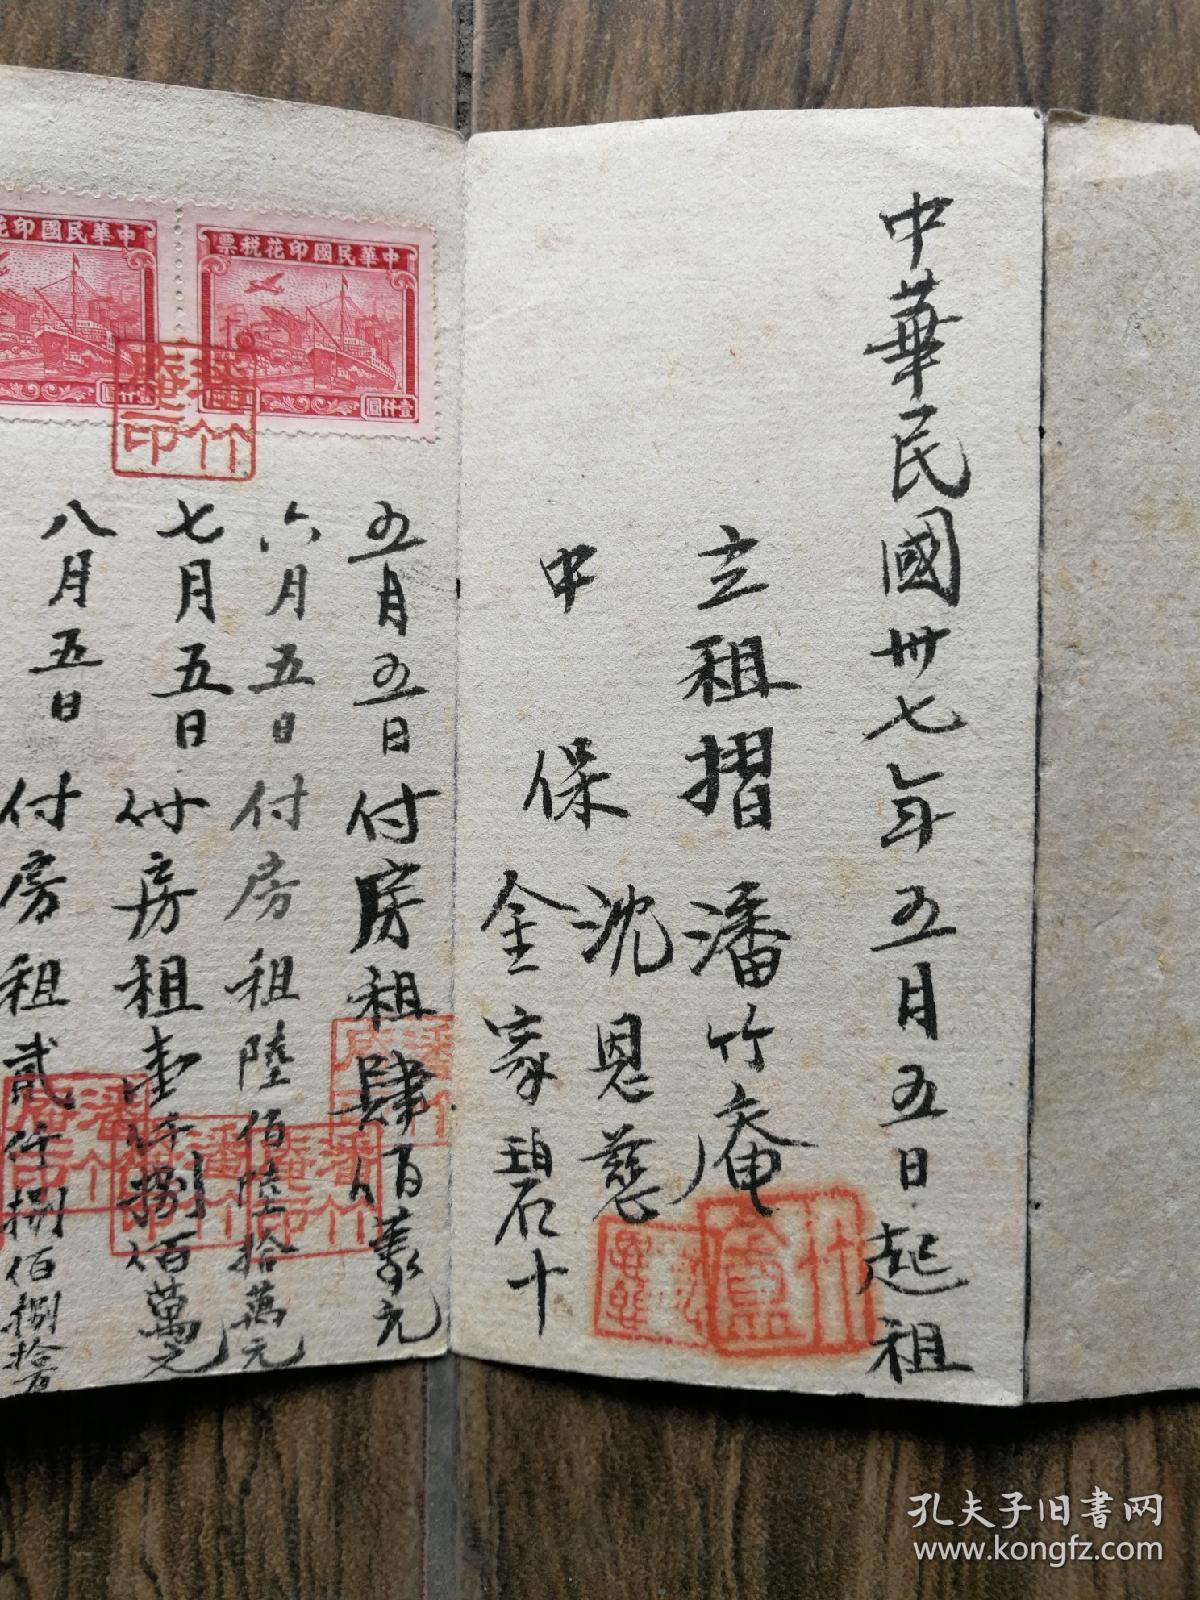 中華民國卅七年五月五日起租
立租摺 潘竹庵
中保 沈恩慈
金家碧十
竹盧
中華民國印花稅票
壹仟圓
中華民國印花
仟圓
潘竹庵印
五月五日付房租肆佰萬元
六月五日付房租陸佰陸拾萬元
七月五日付房租壹仟捌佰萬元
八月五日付房租貳仟捌佰捌拾萬
潘竹庵印
潘竹庵印
潘竹庵印
潘竹庵印
孔夫子旧书网
www.kongfz.com